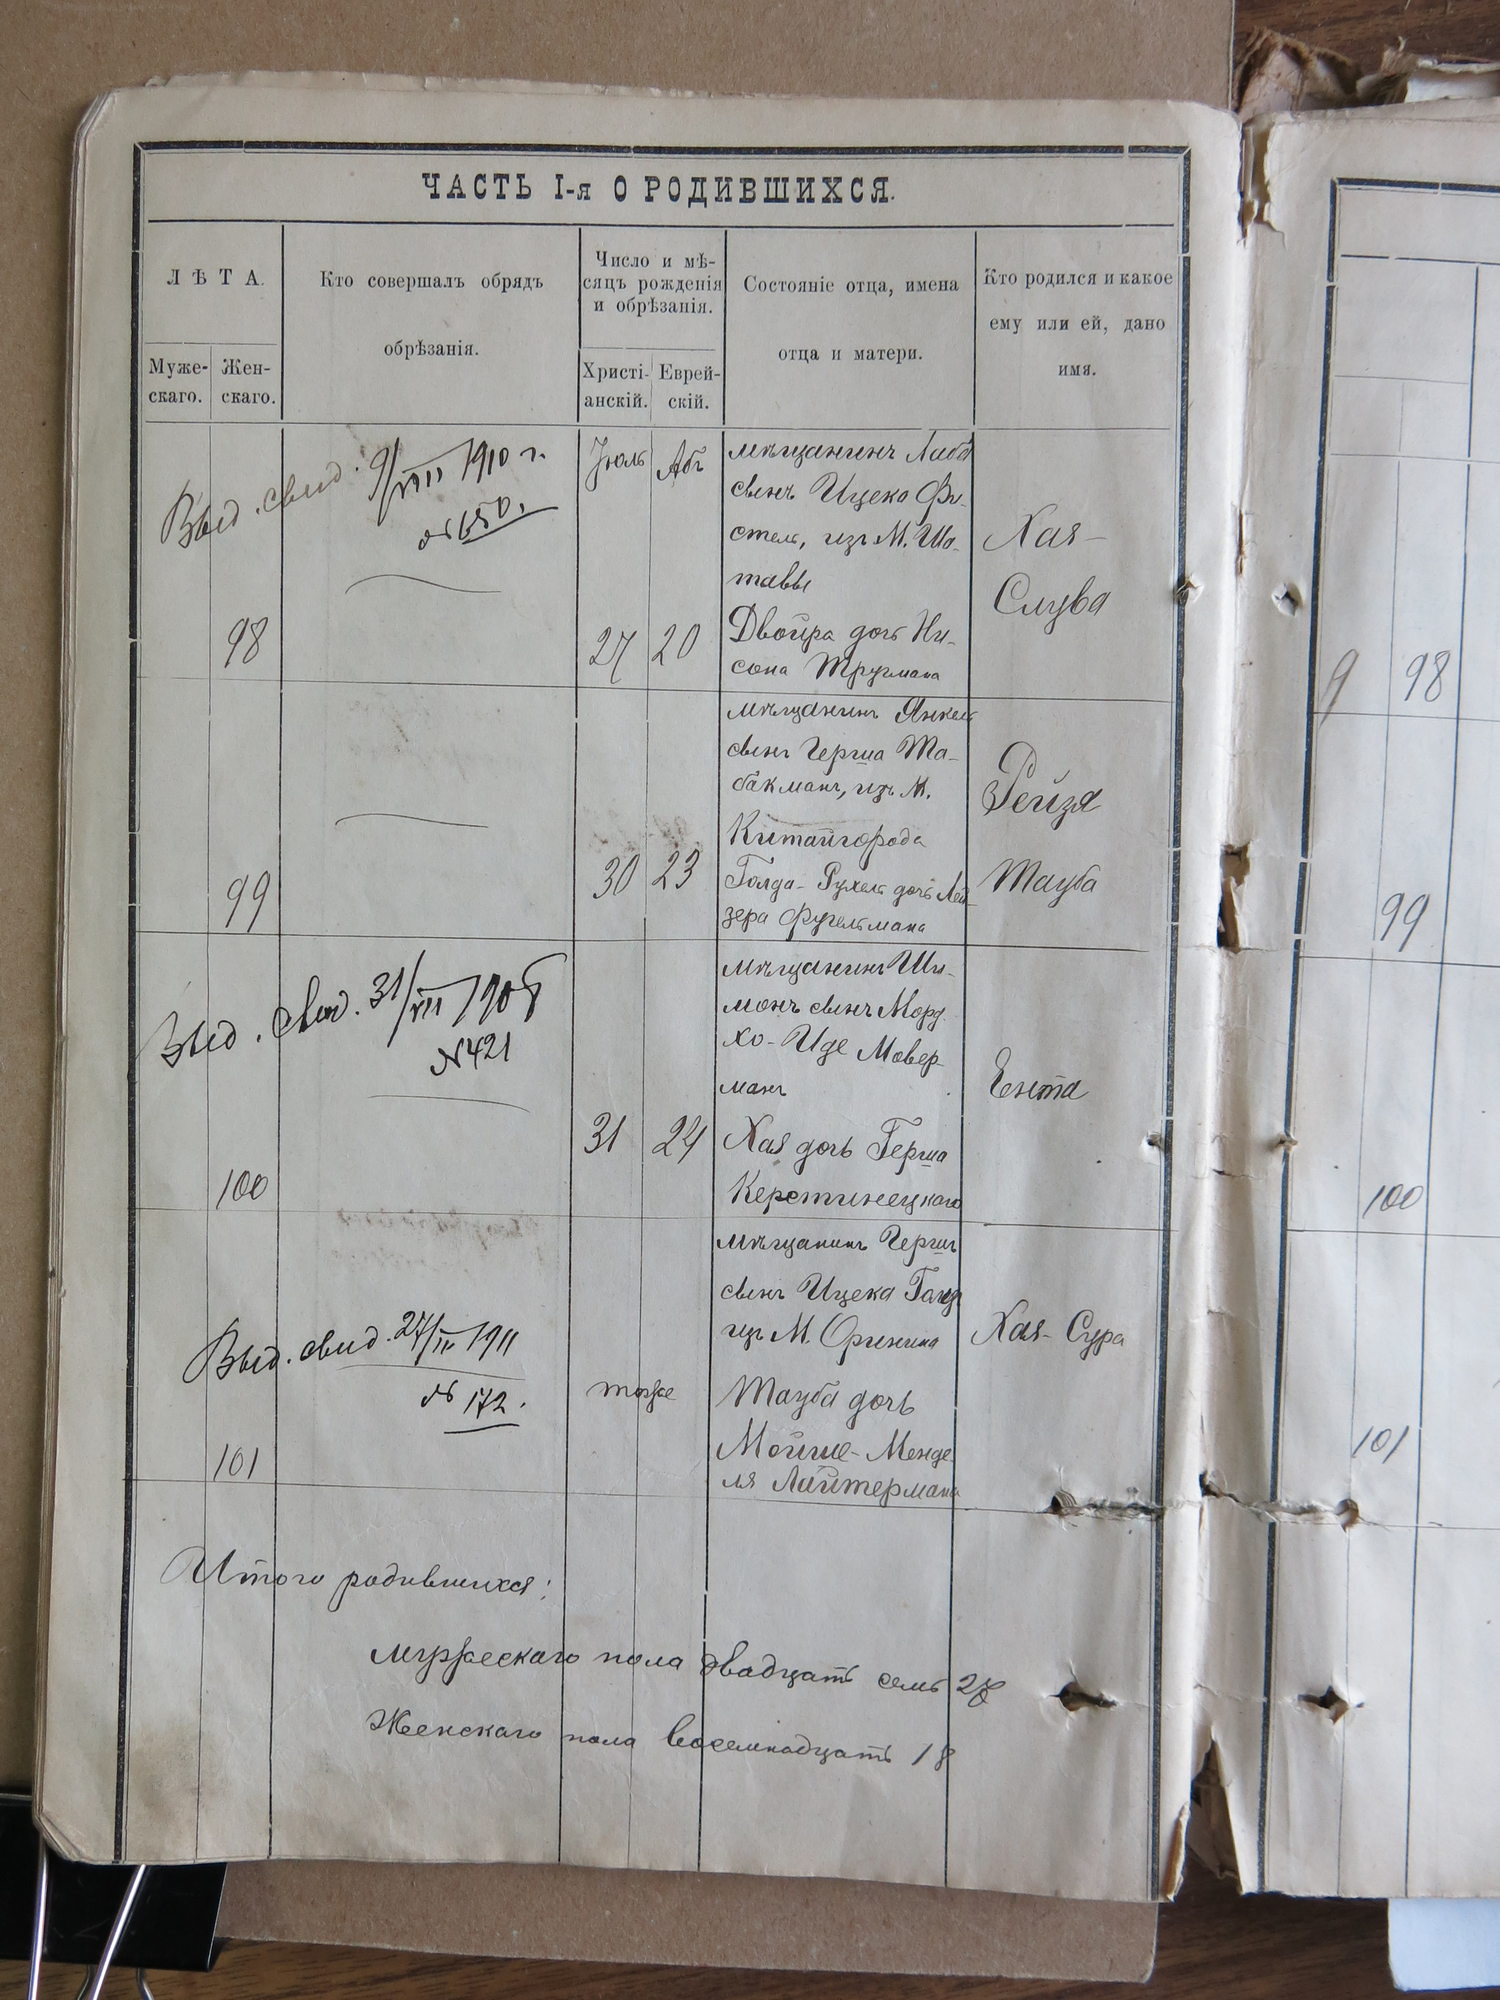 ЧАСТЬ I-я О РОДИВШИХСЯ.
ЛѢТА.
Муже-
скаго.
Жен-
скаго.
Кто совершалъ обрядъ
обрѣзанія.
Число и мѣ-
сяцъ рожденія
и обрѣзанія.
Христі-
анскій.
Еврей-
скій.
Состояніе отца, имена
отца и матери.
Кто родился и какое
ему или ей, дано
имя.
Выд. свид. 9/VIII 1910 г.
№ 650.
98
Іюль
27
Абъ
20
мѣщанинъ
сынъ Ицека Фи-
стель, изъ М. Ша-
тавы
Двойра дочь Ни-
сона Тругмана
Хая-
Слува
99
30
23
мѣщанинъ Янкель
сынъ Герша Та-
бакманъ, изъ М.
Китайгорода
Голда-Рухель дочь Лей-
зера Фугельмана
Рейзя
Тауба
Выд. свид. 31/VII 1906
№ 421
100
31
24
мѣщанинъ Ши-
монъ сынъ Морд-
хо-Иде Мовер-
манъ
Хая дочь Герша
Керстинецкаго
Ента
Выд. свид. 27/IV 1911
№ 172.
101
тоже
мѣщанинъ Гершъ
сынъ Ицека
изъ М. Оринина
Тауба дочь
Мойше-Менде-
ля Лайтермана
Хая-Сура
Итого родившихся:
мужескаго пола двадцать семь 27
Женскаго пола восемнадцать 18
9 98
99
100
101